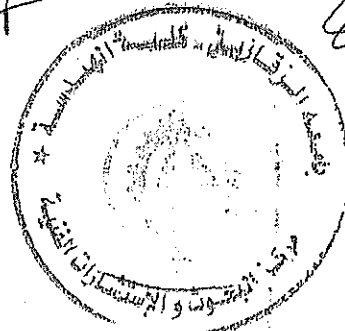 جامعة الزقازيق - كلية الهندسة
مركز البحوث و الإستشارات الفنية